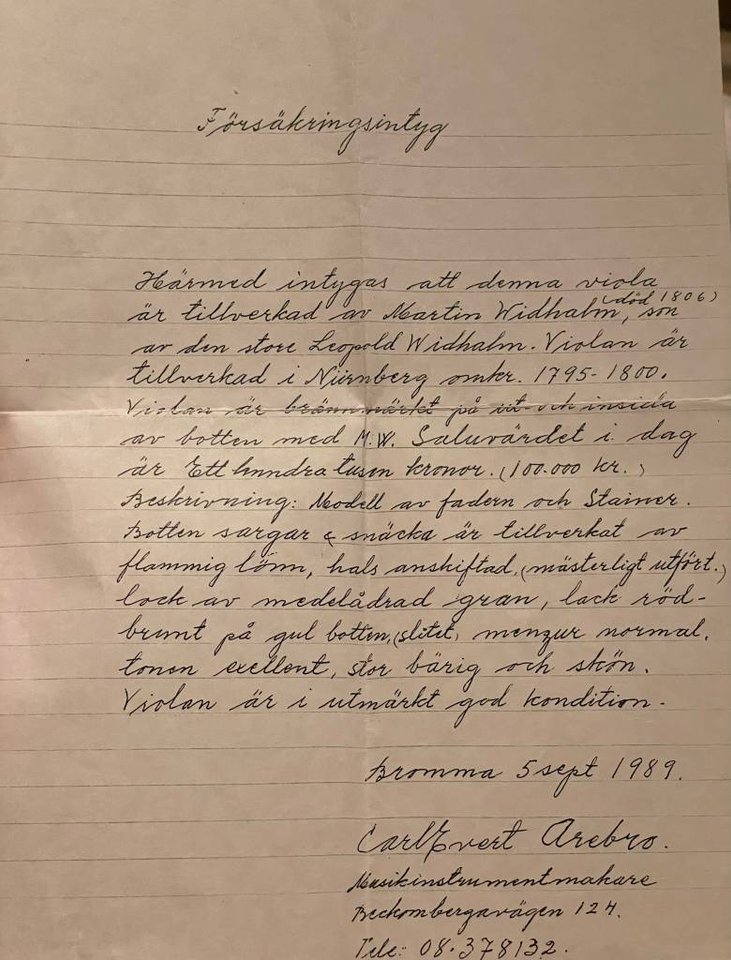 Försäkringsintyg
Härmed intygas att denna viola
är tillverkad av Martin Widhalm, (död 1806) son
av den store Leopold Widhalm. Violan är
tillverkad i Nürnberg omkr. 1795-1800.
Violan är brännmärkt på ut- och insida
av botten med M.W. Saluvärdet i dag
är Ett hundra tusen kronor. (100.000 kr.)
Beskrivning: Modell av fadern och Stainer.
Botten sargar & snäcka är tillverkat av
flammig lönn, hals anskiftad, (mästerligt utfört.)
lock av medelådrad gran, lack röd-
brunt på gul botten, (slitet, menzur normal.
tonen exellent, stor bärig och skön.
Violan är i utmärkt god kondition.
Bromma 5 sept 1989.
Carl Evert Arebro.
Musikinstrumentmakare
Beckombergavägen 124.
Tele: 08.378132.